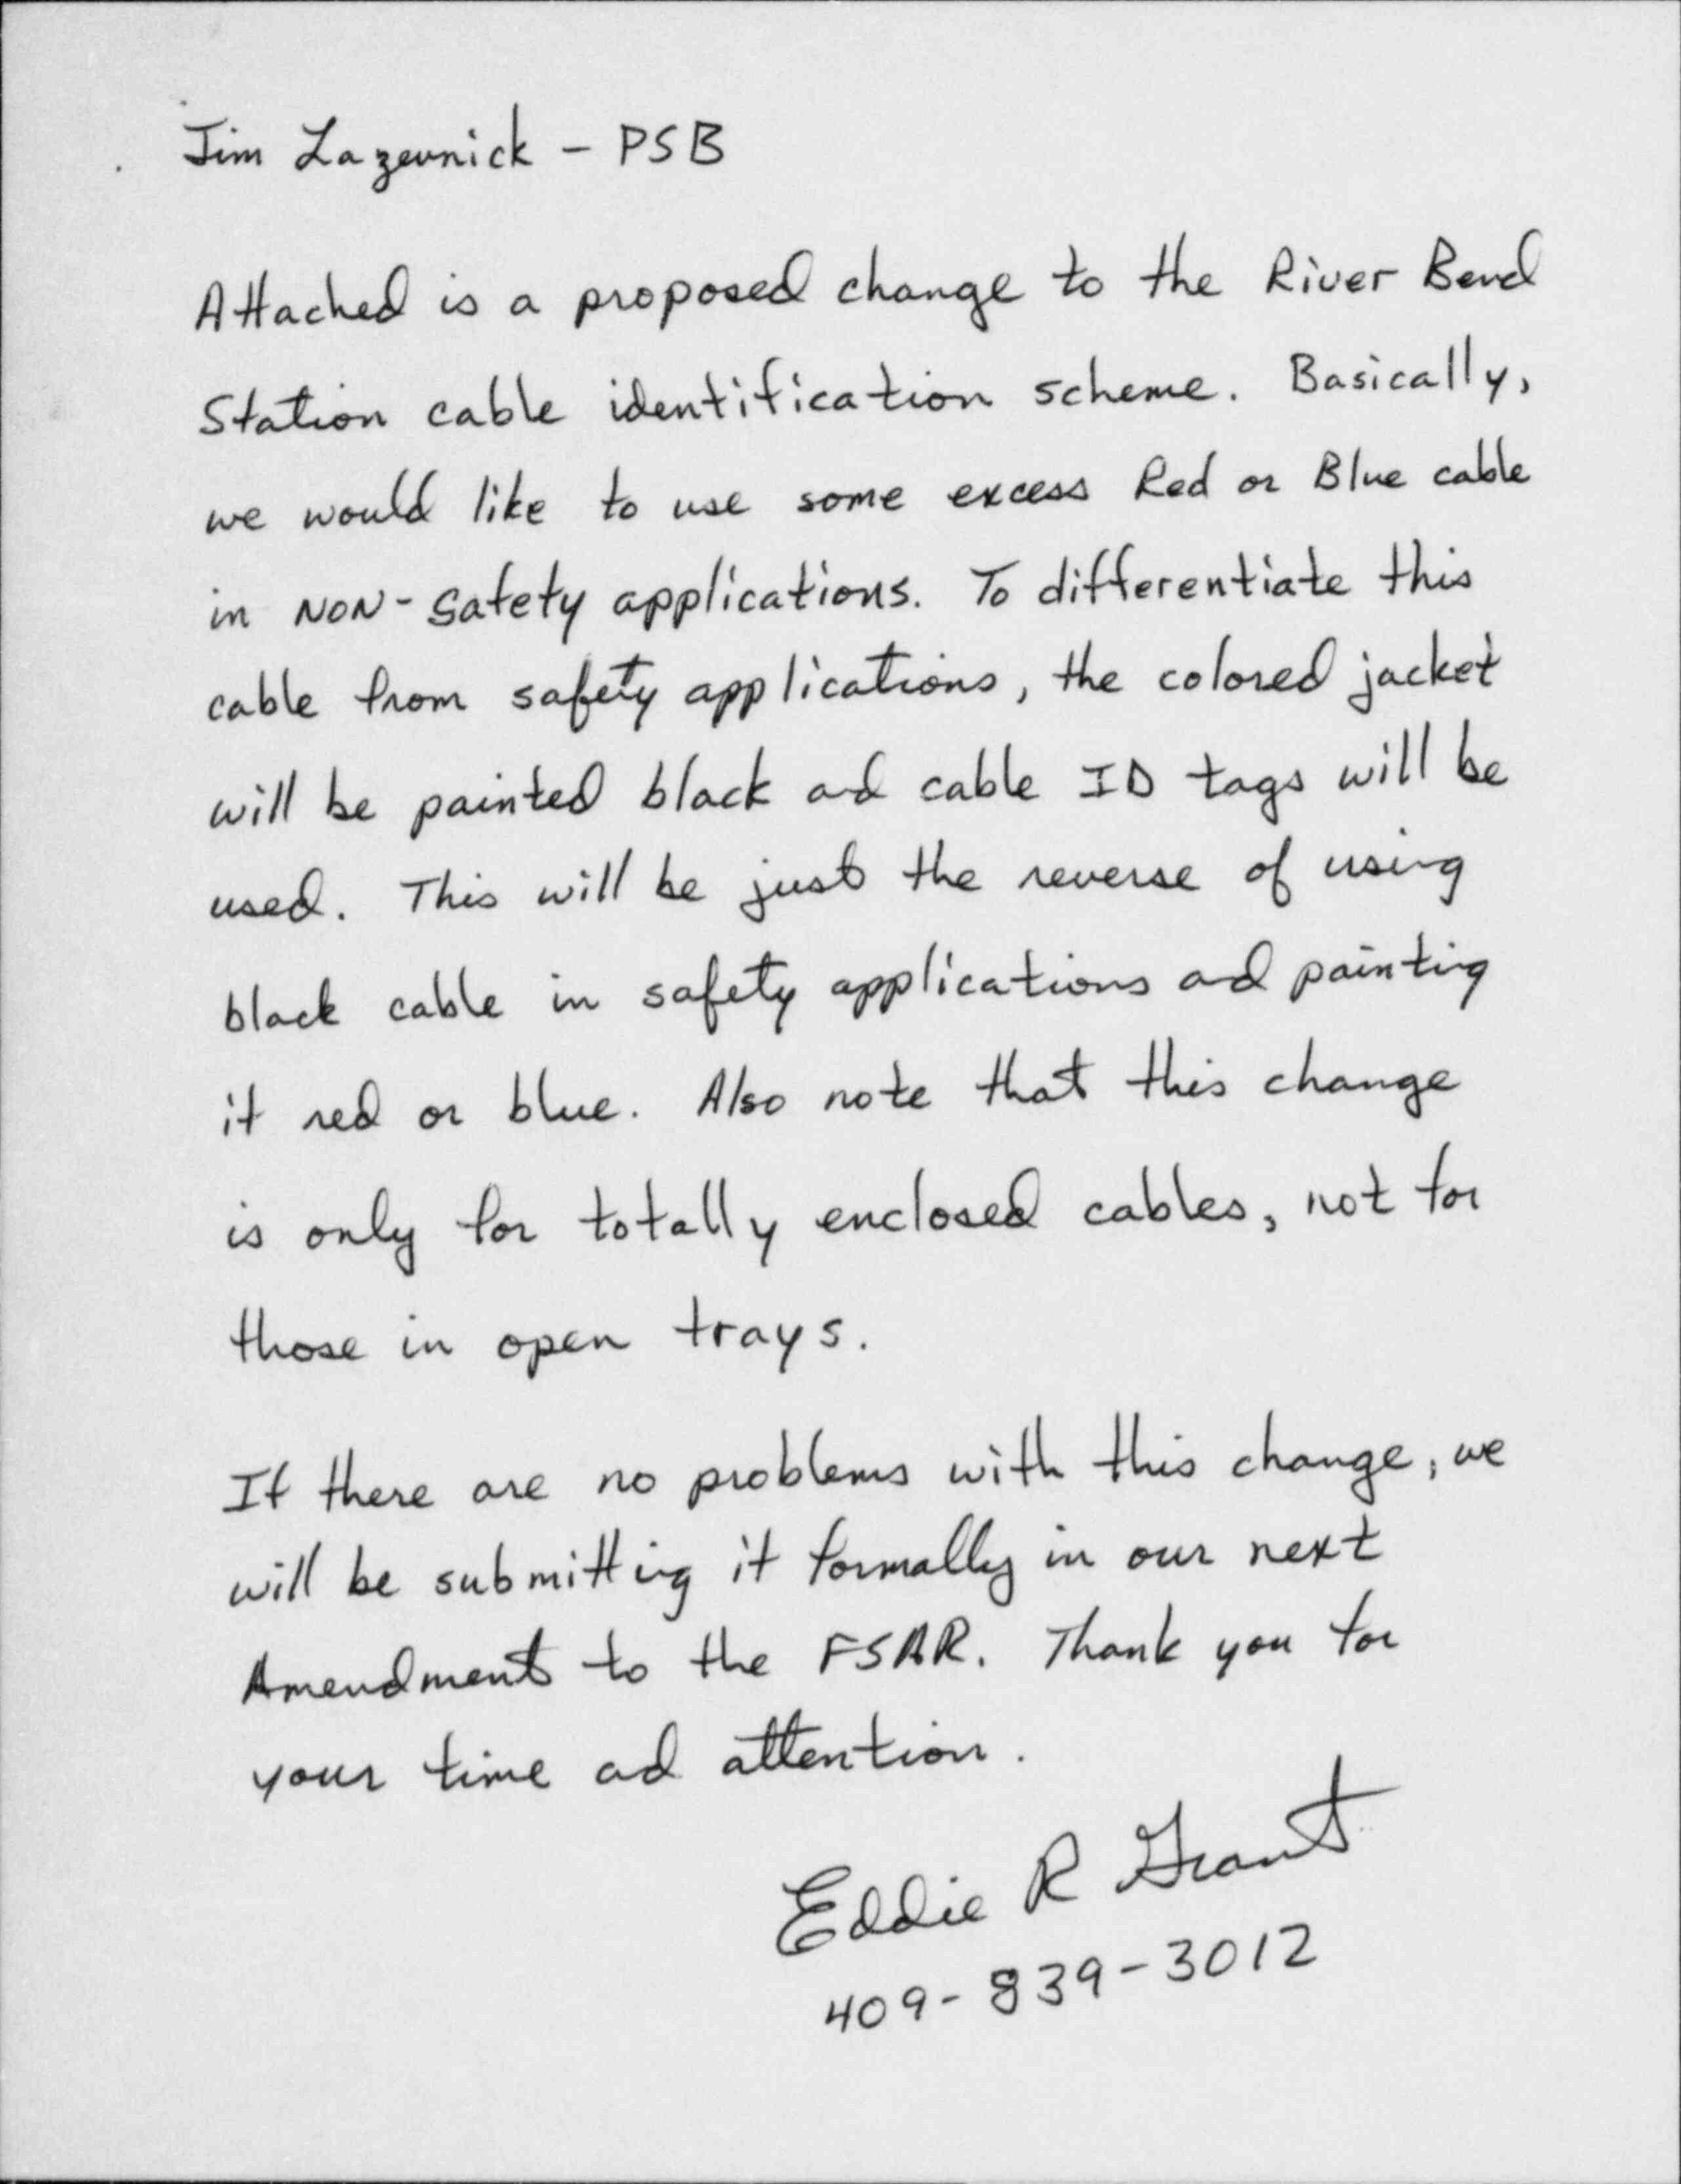 Jim Lazevnick - PSB
Attached is a proposed change to the River Bend
Station cable identification scheme. Basically,
we would like to use some excess Red or Blue cable
in NON-safety applications. To differentiate this
cable from safety applications, the colored jacket
will be painted black ad cable ID tags will be
used. This will be just the reverse of using
black cable in safety applications ad painting
it red or blue. Also note that this change
is only for totally enclosed cables, not for
those in open trays.
If there are no problems with this change, we
will be submitting it formally in our next
Amendment to the FSAR. Thank you for
your time ad attention.
Eddie R Grant
409-839-3012